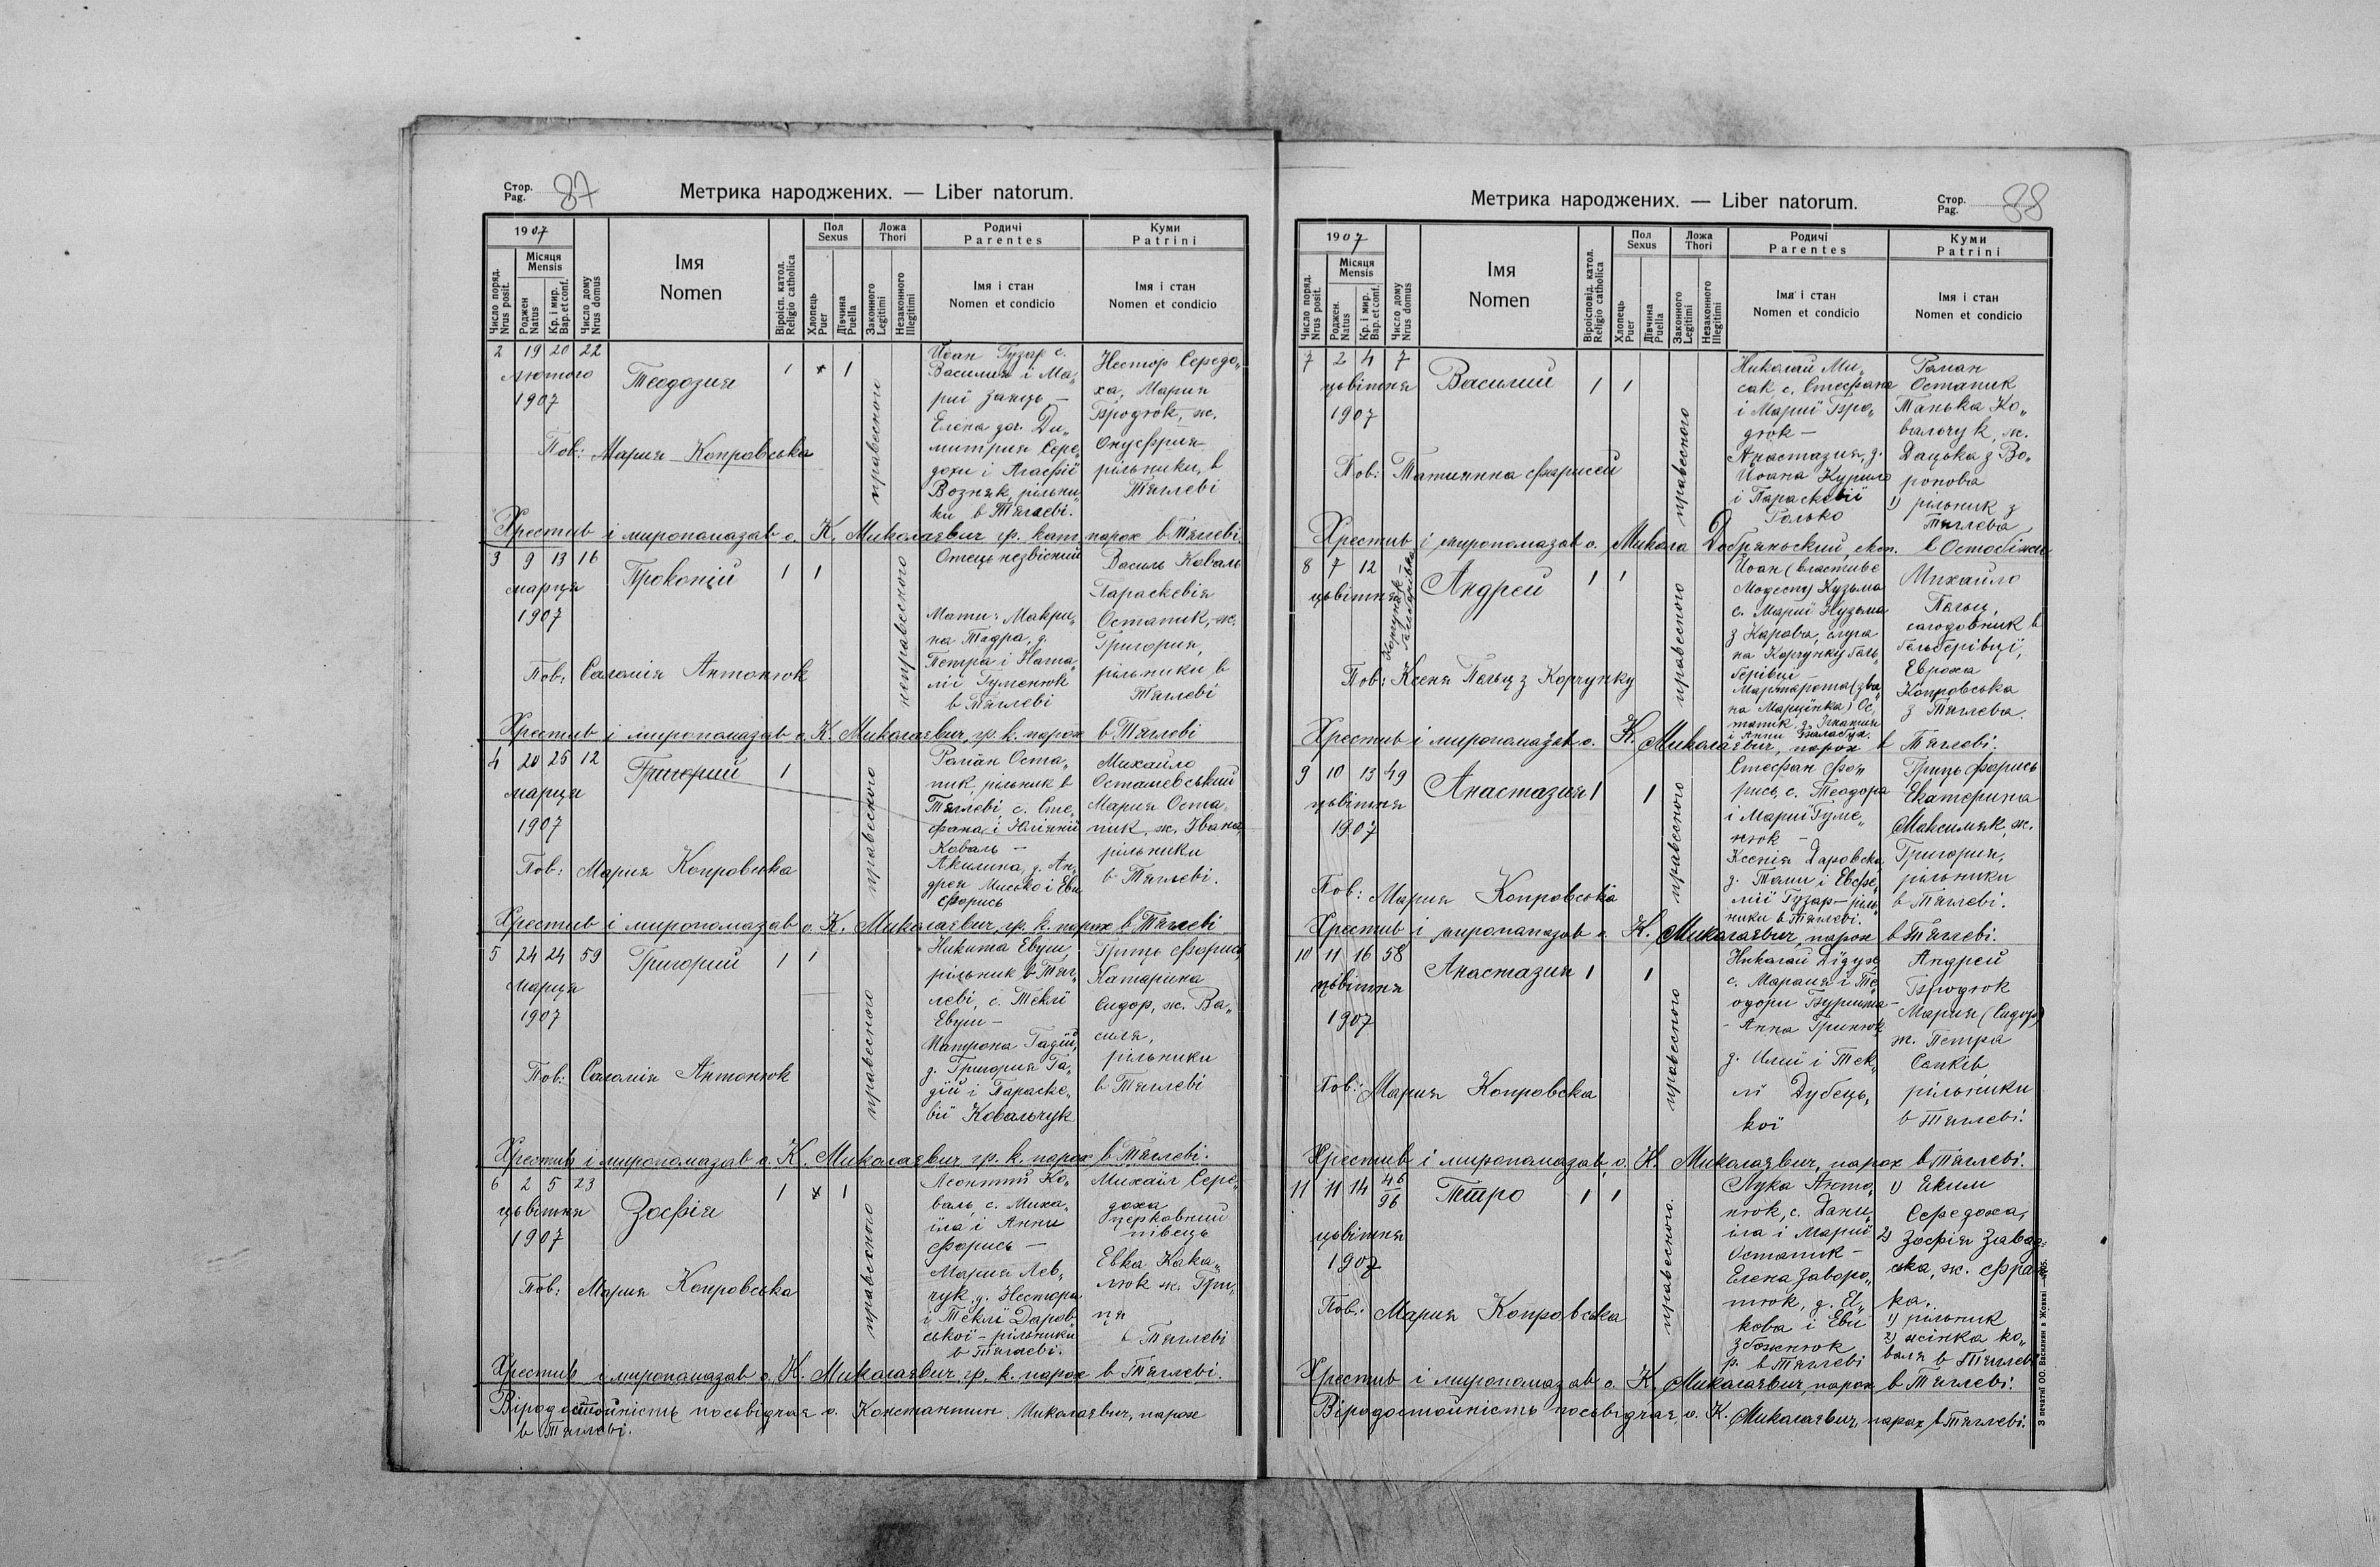 Стор.
Pag. 87
Метрика народжених. — Liber natorum.
1907
Число поряд.
Nrus posit.
Місяця
Mensis
Роджен
Natus
Кр. і мир.
Bap. et conf.
Число дому
Nrus domus
Імя
Nomen
Віроісп. катол.
Religio catholica
Пол
Sexus
Хлопець
Puer
Дівчина
Puella
Ложа
Thori
Законного
Legitimi
Незаконного
Illegitimi
Родичі
Parentes
Імя і стан
Nomen et condicio
Куми
Patrini
Імя і стан
Nomen et condicio
2 19 20 22
лютого
1907
Теодозия
1 x 1
правесного
Йоан Гузар с.
Василия і Ма„
риї Заяць —
Елена доч. Ди„
митрия Сере„
дохи і Агафії
Возняк, рільни„
ки в Тяглеві.
Нестор Середо„
ха, Мария
Бродюк, ж.
Онуфрия—
рільники, в
Тяглеві
Пов: Мария Копровська
Хрестив і миропомазав о. К. Миколаєвич гр. кат. парох в Тяглеві
3 9 13 16
марця
1907
Прокопій
1 1
неправесного
Отець незвісний
Мати: Макри„
на Тадра, д.
Петра і Ната„
лії Гуменюк
в Тяглеві
Василь Коваль
Параскевія
Остапик, ж.
Григория,
рільники в
Тяглеві
Пов: Саломія Антонюк
Хрестив і миропомазав о. К. Миколаєвич, гр. к. парох в Тяглеві
4 20 25 12
марця
1907
Григорий
1
правесного
Роман Оста„
пик, рільник в
Тяглеві, с. Сте„
фана і Юлїянії
Коваль —
Акилина, д. Ан„
дрея Мисько і Еви
Форись
Михайло
Осташевський
Мария Оста„
пик, ж. Івана,
рільники
в Тяглеві.
Пов: Мария Копровська
Хрестив і миропомазав о. К. Миколаєвич, гр. к. парох в Тяглеві
5 24 24 59
марця
1907
Григорий
1 1
правесного
Никита Евуш,
рільник в Тяг„
леві, с. Теклї
Евуш —
Матрона Гадїй,
д. Григория Га„
дїй і Параске„
вії Ковальчук
Гриць Форись,
Катарина
Сидор, ж. Ва„
силя,
рільники
в Тяглеві
Пов: Саломія Антонюк
Хрестив і миропомазав о. К. Миколаєвич гр. к. парох в Тяглеві.
6 2 5 23
цьвітня
1907
Зофія
1 x 1
правесного
Леонтий Ко„
валь, с. Миха„
йла і Анни
Форись —
Мария Лев„
чук, д. Нестора
і Теклї Даров„
ської – рільники
в Тяглеві.
Михаїл Сере„
доха
церковний
півець
Евка Кака„
люк ж. Гри„
ця
в Тяглеві
Пов: Мария Копровська
Хрестив і миропомазав о. К. Миколаєвич, гр. к. парох в Тяглеві.
Віродостойність посьвідчає о. Константин Миколаєвич, парох
в Тяглеві.
Метрика народжених. — Liber natorum.
Стор.
Pag. 88
1907
Число поряд.
Nrus posit.
Місяця
Mensis
Роджен.
Natus
Кр. і мир.
Bap. et conf.
Число дому
Nrus domus
Імя
Nomen
Віроісповід. катол.
Religio catholica
Пол
Sexus
Хлопець
Puer
Дівчина
Puella
Ложа
Thori
Законного
Legitimi
Незаконного
Illegitimi
Родичі
Parentes
Імя і стан
Nomen et condicio
Куми
Patrini
Імя і стан
Nomen et condicio
7 2 4 7
цьвітня
1907
Василий
1 1
правесного
Николай Ми„
сак, с. Стефана
і Мариї Бро„
дюк —
Анастазия, д.
Йоана Курило
і Параскевії
Голько
Роман
Остапик
Танька Ко„
вальчук, ж.
Дацька з Во„
ронова
1) рільник з
Тяглева
Пов: Татиянна Фарисей
Хрестив і миропомазав о. Микола Добрянський, в Остобіжсь
8 7 12
цьвітня
Андрей
1 1
правесного
Йоан (властиве
Модест) Кузьма
с. Мариї Кузьма
з Карова, слуга
на Корчунку Галь„
берівці —
Марґарота (зва„
на Марцїнка) Ос„
тапик, д. Ігнатия
і Анни
Михайло
Пельц,
садовник в
Гальберівцї,
Евроха
Копровська
з Тяглева.
Пов: Ксеня Пельц з Корчунку
Хрестив і миропомазав о. К. Миколаєвич, парох в Тяглеві.
9 10 13 49
цьвітня
1907
Анастазия
1 1
правесного
Стефан Фо„
рись, с. Теодора
і Мариї Гуме„
нюк —
Ксенія Даровска
д. Томи і Евфе„
мії Гузар – рiль„
ники в Тяглеві.
Гриць Форись
Екатерина
Максимяк, ж.
Григория,
рільники
в Тяглеві.
Пов: Мария Копровська
Хрестив і миропомазав о. К. Миколаєвич, парох в Тяглеві.
10 11 16 58
цьвітня
1907
Анастазия
1 1
правесного
Николай Дїдух
с. Марана і Те„
одори Буришка —
- Анна Гринюк
д. Илиї і Тек„
лї Дубець„
кої
Андрей
Бродюк
Мария (Сидор)
ж. Петра
Сеньків
рільники
в Тяглеві.
Пов: Мария Копровска
Хрестив і миропомазав о. К. Миколаєвич, парох в Тяглеві.
11 11 14 46
96
цьвітня
1907
Петро
1 1
правесного.
Лука Анто„
нюк, с. Дани„
ила і Мариї
Остапик —
Елена Заворо„
тюк, д. Я„
кова і Еви
Збожнюк
р. в Тяглеві
1) Еким
Середоха,
2) Зофія Завад„
ська, ж. Фран„
ка.
1) рільник
2) жінка ко„
валя в Тяглеві
Пов: Мария Копровська
Хрестив і миропомазав о. К. Миколаєвич, парох в Тяглеві.
Віродостойність посьвідчає о. К. Миколаєвич, парох в Тяглеві.
З печатнї ОО. Василиян в Жовкві